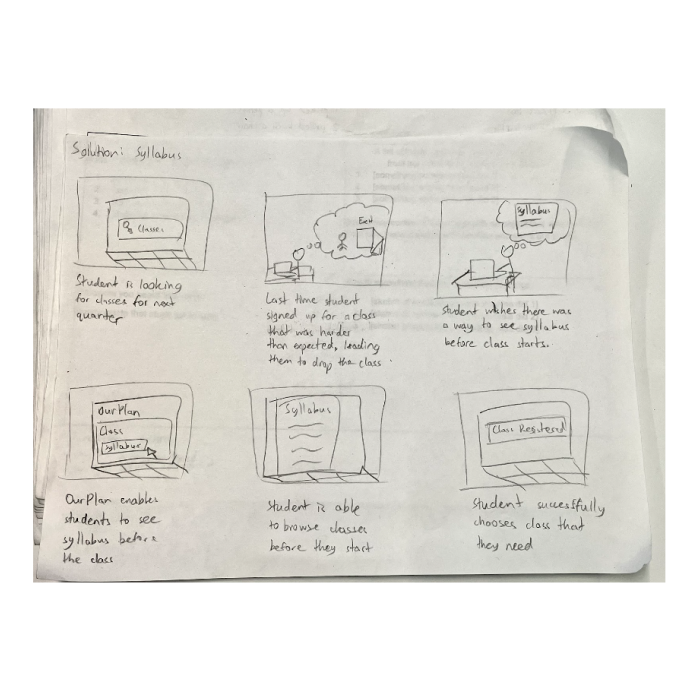 Solution: Syllabus
Classes
Student is looking
for classes for next
quarter
Exit
Last time student
signed up for a class
that was harder
than expected, leading
them to drop the class.
Syllabus
Student wishes there was
a way to see syllabus
before class starts.
OurPlan
Class
Syllabus
OurPlan enables
students to see
syllabus before
the class
Syllabus
Student is able
to browse classes
before they start
Class Registered
Student successfully
chooses class that
they need